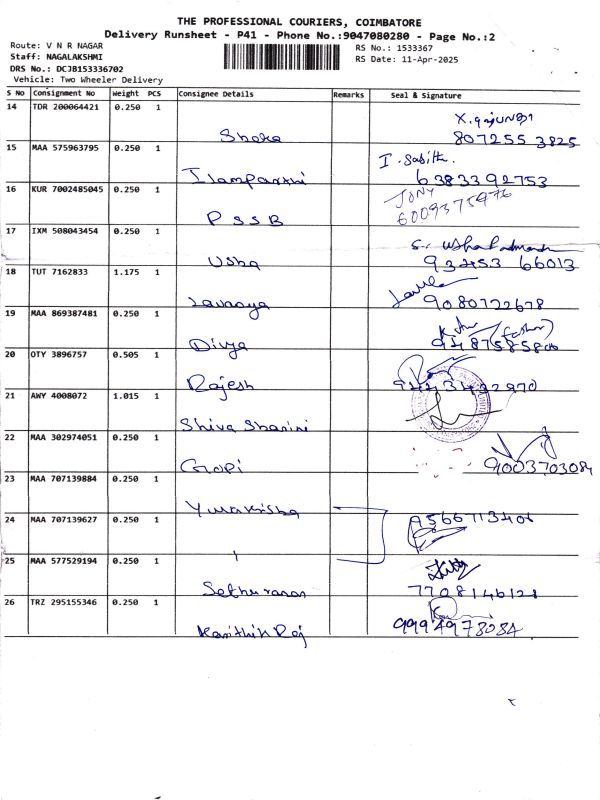 THE PROFESSIONAL COURIERS, COIMBATORE
Delivery Runsheet - P41 - Phone No.:9047080280 - Page No.:2
Route: V N R NAGAR
Staff: NAGALAKSHMI
DRS No.: DCJB153336702
Vehicle: Two Wheeler Delivery
RS No.: 1533367
RS Date: 11-Apr-2025
S No Consignment No Weight PCS Consignee Details Remarks Seal & Signature
14 TDR 200064421 0.250 1
Shoba 807255 3825
15 MAA 575963795 0.250 1 I. Sasith.
Ilamparthi 6383392753
16 KUR 7002485045 0.250 1 Jony
PSSB 6009375976
17 IXM 508043454 0.250 1
Usha 93453 66013
18 TUT 7162833 1.175 1
Lavanya 9080722678
19 MAA 869387481 0.250 1 (father)
Divya
20 OTY 3896757 0.505 1
Rajesh
21 AWY 4008072 1.015 1
Shiva Sharini
22 MAA 302974051 0.250 1
Gopi 9003703084
23 MAA 707139884 0.250 1
24 MAA 707139627 0.250 1 9566713406
25 MAA 577529194 0.250 1
Sethuraman 7708146121
26 TRZ 295155346 0.250 1
Karithik Raj 9994978084